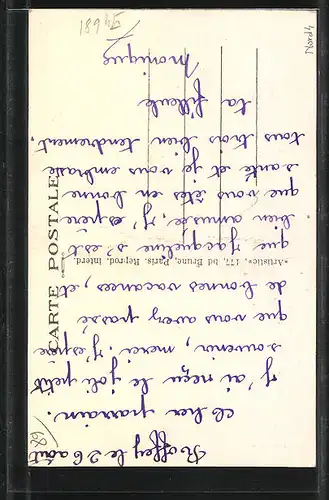 Roffey le 26 août
Cher parrain.
J'ai reçu le joli petit
souvenir, merci. J'espère
que vous avez passé
de bonnes vacances, et
que Jacqueline s'est
bien amusée. J'espère
que vous êtes en bonne
santé et je vous embrasse
tous trois bien tendrement
ta filleule
Monique
CARTE POSTALE
«Artistic», 177, bd Brune, Paris. Reprod. interd.
68